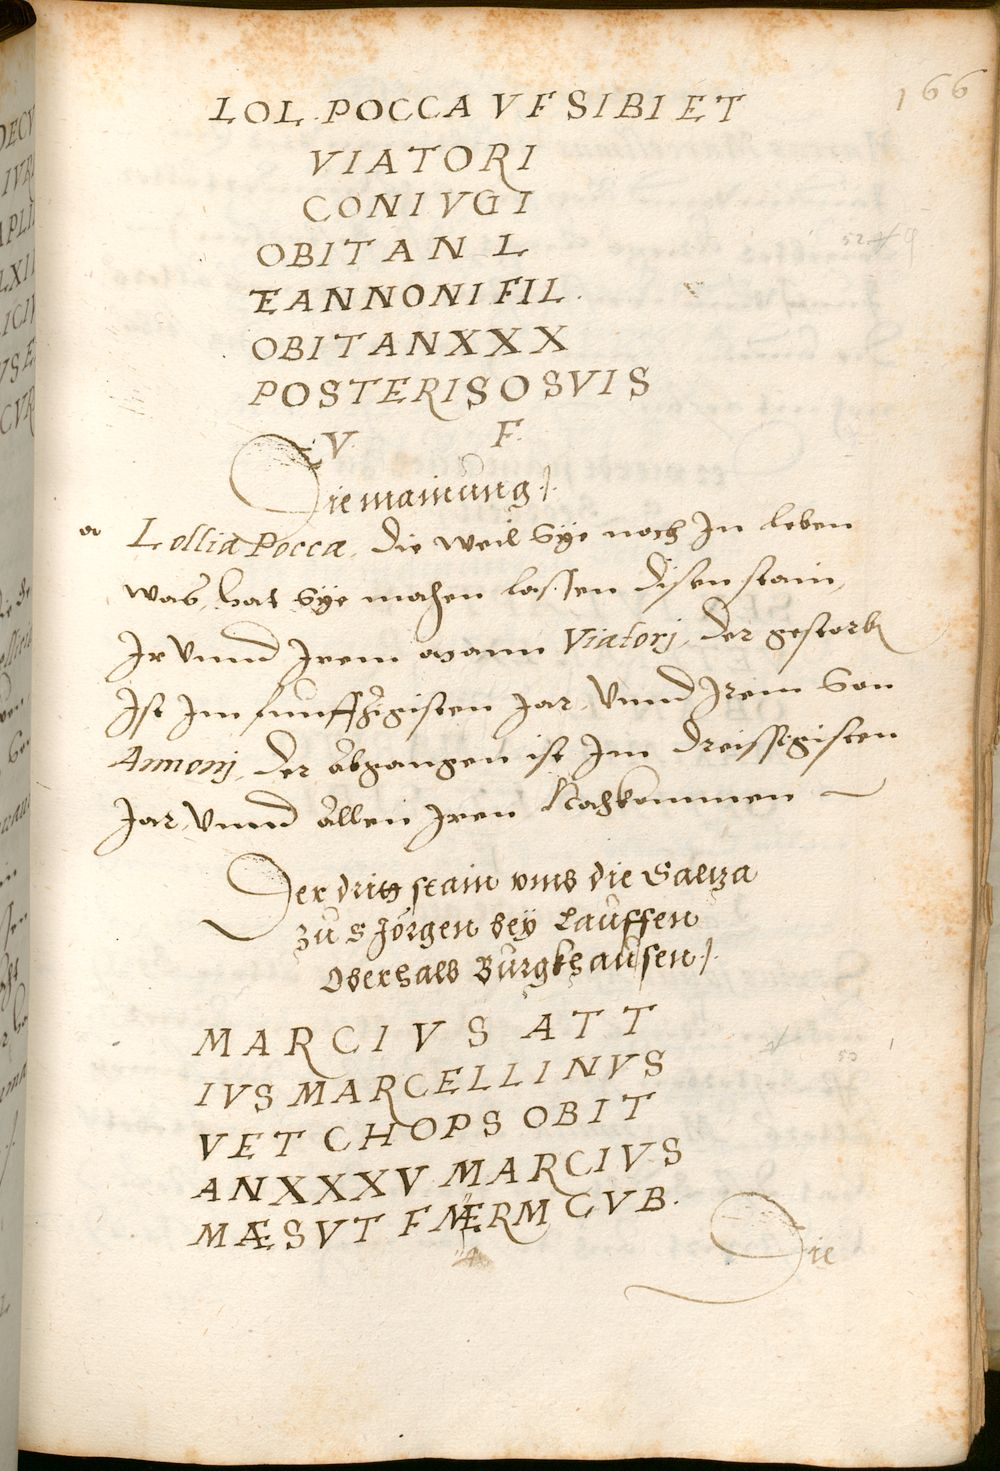 166
LOL. POCCA VF SIBI ET
VIATORI
CONIVGI
OBIT AN L
52
EANNONI FIL.
OBIT AN XXX
POSTERISQ SVIS
V. F.
Die mainung
a Lollia Pocca, die weil sÿe noch In leben
was, hat sÿe machen lassen disen stain,
Ir vnnd Irem mann Viatorj, der gestorben
Ist Im funffzigisten Jar, vnnd Irem Son
Annonj, der abgangen ist Im dreissigisten
Jar, vnnd allen Iren Nachkommen
Der dritt stain vmb die Saltza
zu S Jörgen beÿ Lauffen
Oberhalb Burgkhausen
MARCIVS ATT
50
IVS MARCELLINVS
VET CHOPS OBIT
AN XXXV MARCIVS
MÆSVT FMÆRM CVB.
Die